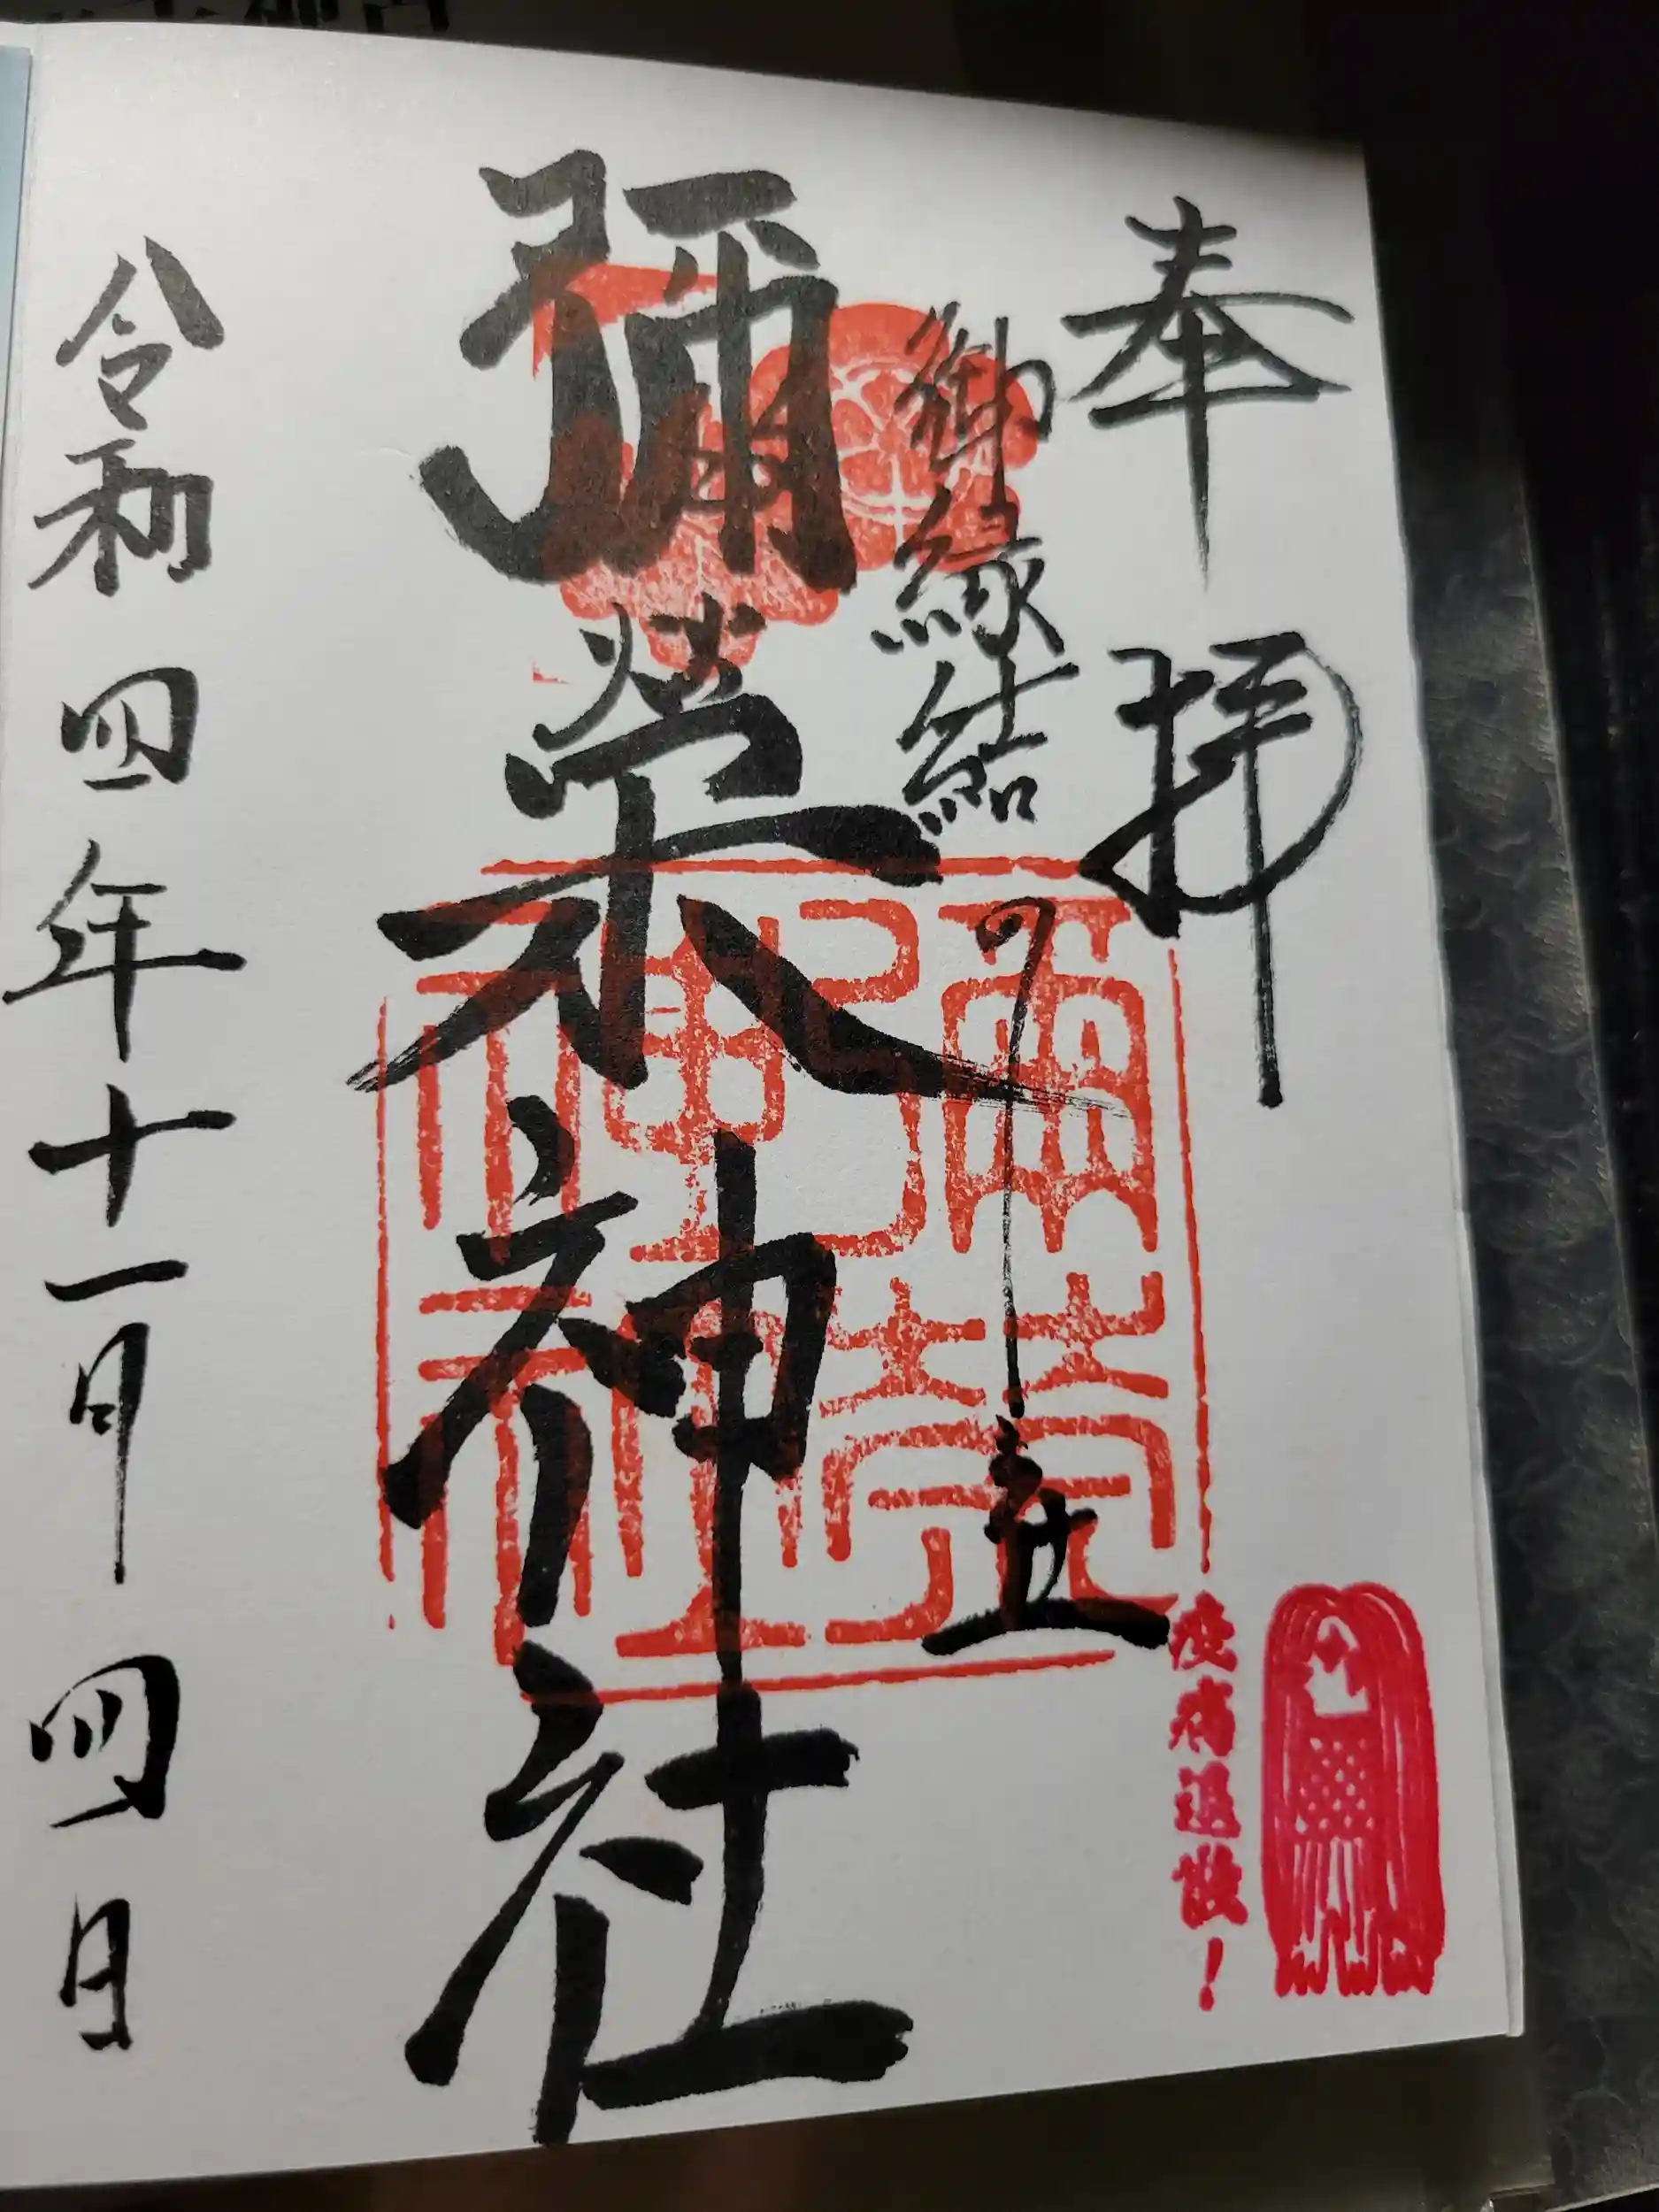 奉拝
御縁結び
彌榮神社
令和四年十一月四日
疫病退散！